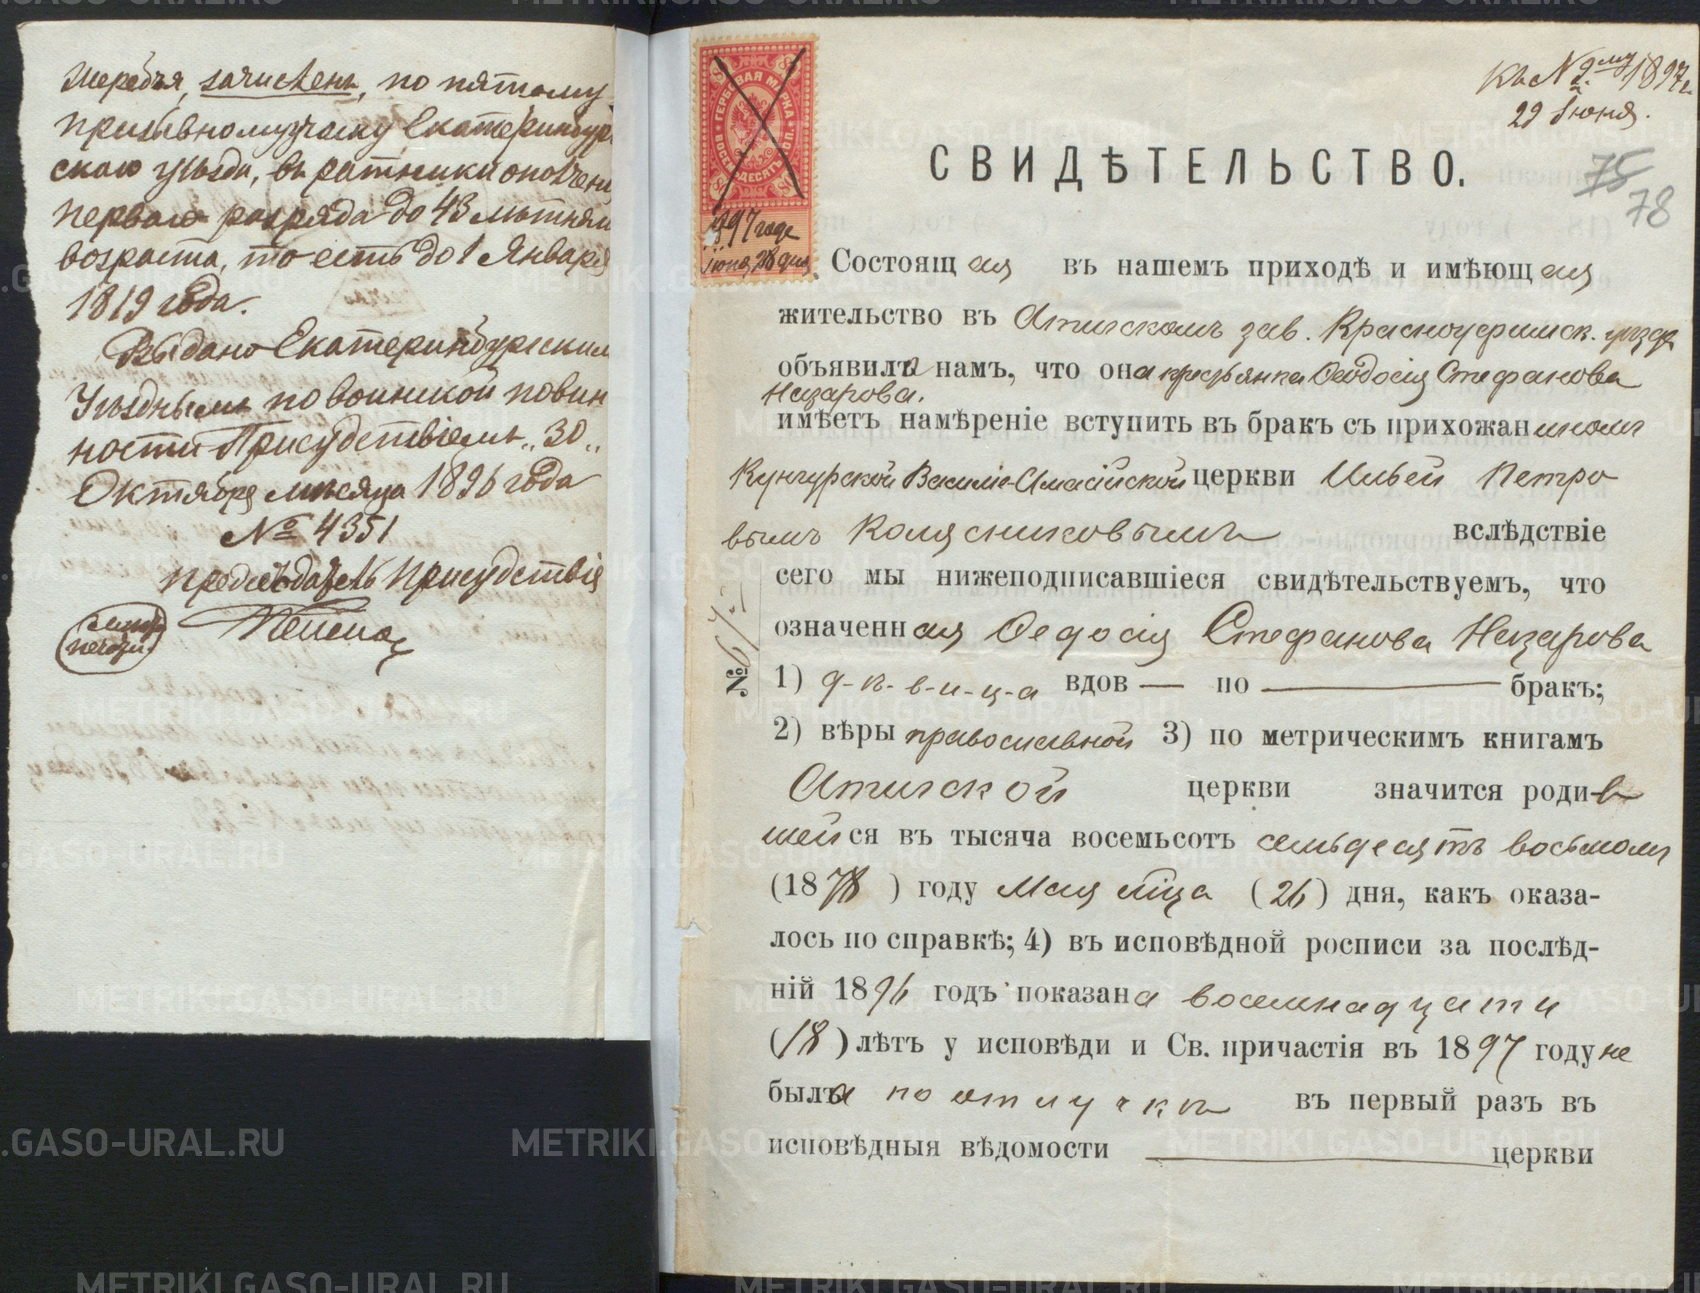 жеребья, зачисленъ, по пятому
призывному участку Екатеринбург
скаго уѣзда, въ ратники ополчені
перваго разряда до 43 лѣтняг
возраста, то есть до 1 Января
1819 года.
Выдано Екатеринбургским
Уѣзднымъ по воинской повин
ности Присудствіемъ „30„
Октября мѣсяца 1896 года
№ 4351
Предсѣдатель Присудствія
печати
Къ № 9му 1897 г.
29 Іюня.
75
78
ГЕРБОВАЯ МАРКА
ВОСЕМЬДЕСЯТЪ КОП.
1897 года
Іюня, 28 дня
СВИДѢТЕЛЬСТВО.
Состоящая въ нашемъ приходѣ и имѣющая
жительство въ Атигскомъ зав. Красноуфимск. уѣзда
объявила намъ, что она крестьянка Ѳеодосія Стефанова
Назарова.
имѣетъ намѣреніе вступить въ бракъ съ прихожаниномъ
Кунгурской Василіе-Амасійской церкви Ильей Петро
вымъ Колясниковымъ вслѣдствіе
сего мы нижеподписавшіеся свидѣтельствуемъ, что
означенная Ѳедосія Стефанова Назарова
№ 67
1) д-ѣ-в-и-ц-а вдов — по — бракъ;
2) вѣры православной 3) по метрическимъ книгамъ
Атигской церкви значится родив
шейся въ тысяча восемьсотъ семьдесятъ восьмомъ
(1878) году Мая мѣца (26) дня, какъ оказа-
лось по справкѣ; 4) въ исповѣдной росписи за послѣд-
ній 1896 годъ показана восемнадцати
(18) лѣтъ у исповѣди и Св. причастія въ 1897 году не
была по отлучкѣ въ первый разъ въ
исповѣдныя вѣдомости — церкви
METRIKI.GASO-URAL.RU